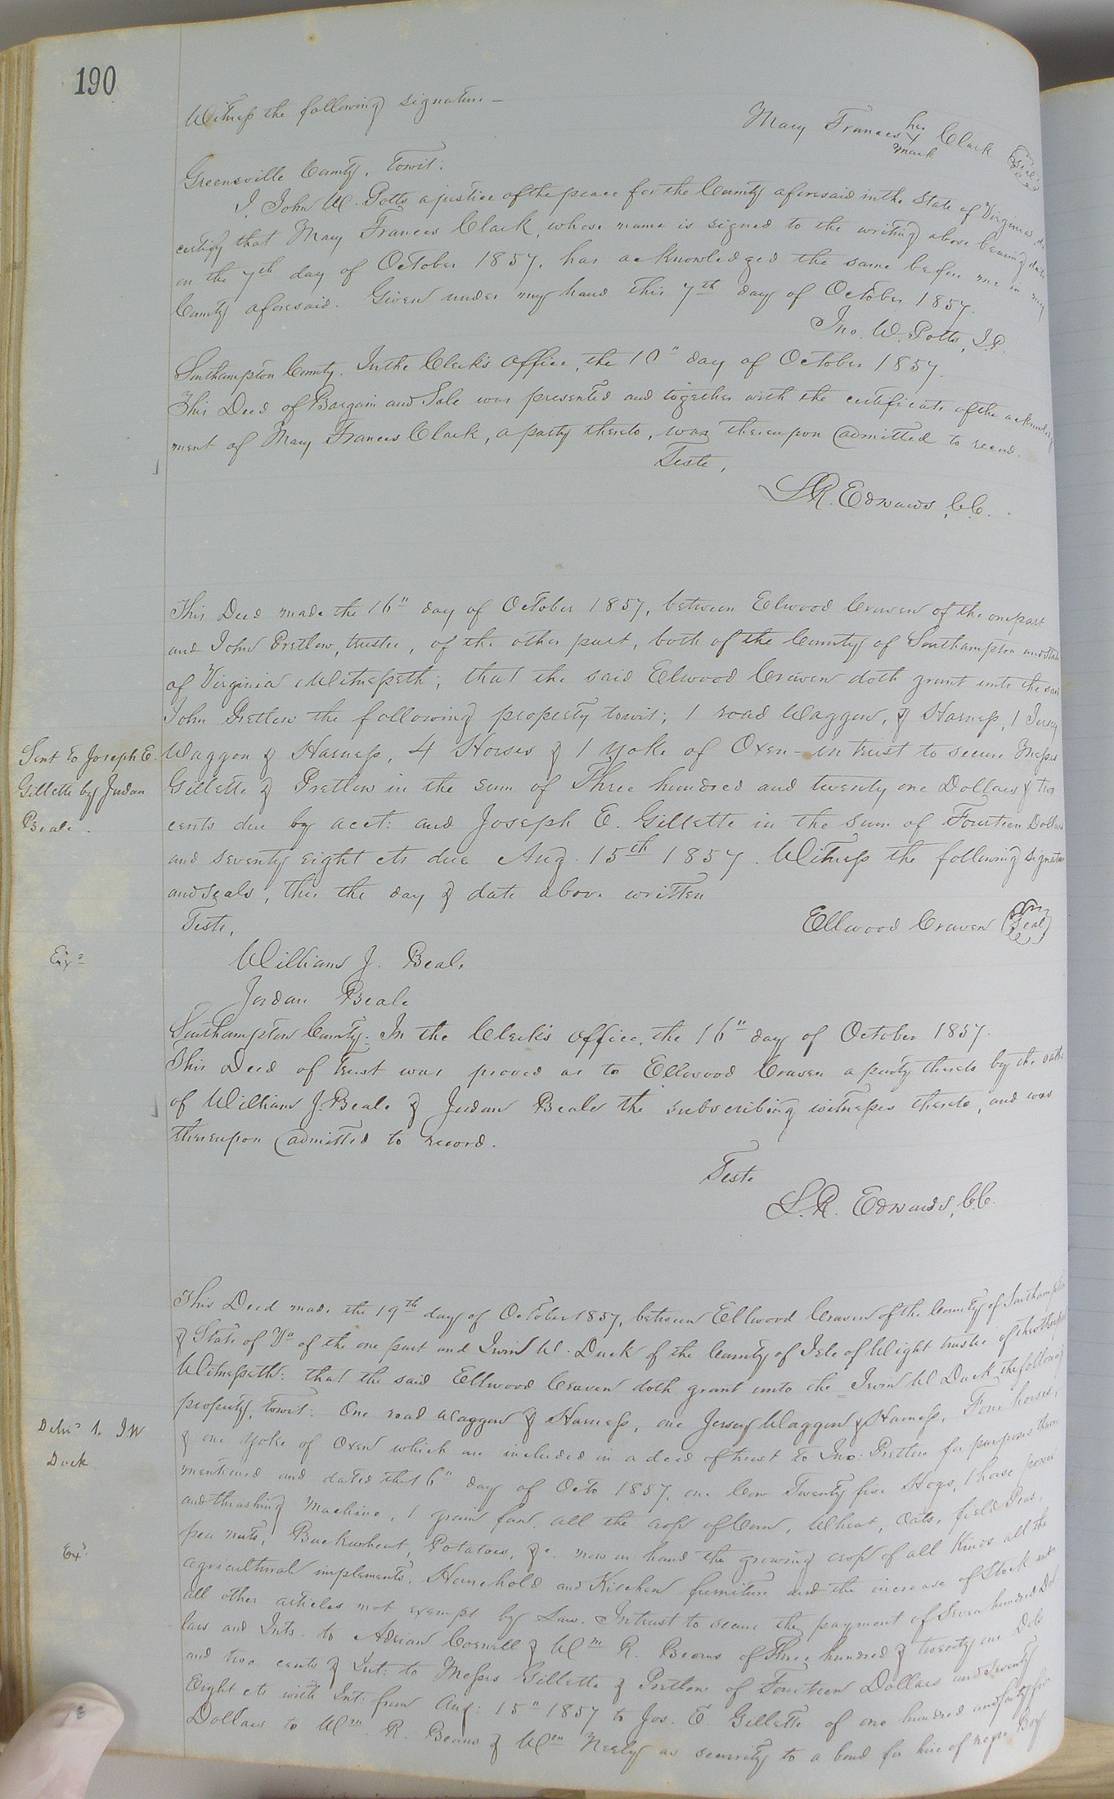 190
Witness the following signature —
Mary Frances her Clark (Seal)
mark
Greensville County, towit:
I, John W. Potts a justice of the peace for the County aforesaid in the State of Virginia, do
certify that Mary Frances Clark, whose name is signed to the writing above bearing date
on the 7th day of October 1857, has acknowledged the same before me in my
County aforesaid. Given under my hand this 7th day of October 1857.
Jno. W. Potts, J.P.
Southampton County. In the Clerk's Office, the 10" day of October 1857.
This Deed of Bargain and Sale was presented and together with the certificate of the acknowledg
ment of Mary Frances Clark, a party thereto, was thereupon admitted to record.
Teste,
L.R. Edwards, C.C.
This Deed made the 16" day of October 1857, between Elwood Craven of the one part
and John Pretlow, trustee, of the other part, both of the County of Southampton and State
of Virginia Witnesseth; that the said Elwood Craven doth grant unto the said
John Pretlow the following property towit; 1 road Waggon, & Harness, 1 Jersey
Waggon & Harness, 4 Horses & 1 yoke of Oxen – in trust to secure Messrs
Gillette & Pretlow in the sum of Three hundred and twenty one Dollars & two
cents due by acct: and Joseph E. Gillette in the sum of Fourteen Dollars
and seventy eight cts due Aug. 15th 1857. Witness the following signature
and seals, this the day & date above written
Sent to Joseph E.
Gillette by Jordan
Beale.
Teste,
Ellwood Craven (Seal)
Exd
William J. Beale
Jordan Beale
Southampton County: In the Clerk's Office, the 16" day of October 1857.
This Deed of Trust was proved as to Ellwood Craven a party thereto by the oaths
of William J. Beale & Jordan Beale the subscribing witnesses thereto, and was
thereupon admitted to record.
Teste
L.R. Edwards, C.C.
This Deed made the 19th day of October 1857, between Ellwood Craven of the County of Southampton
& State of Va of the one part and Irwin W. Duck of the County of Isle of Wight trustee of the other part
Witnesseth: that the said Ellwood Craven doth grant unto the Irwin W Duck the following
property, towit: One road Waggon & Harness, one Jersey Waggon & Harness, Four horses,
& one yoke of Oxen which are included in a deed of trust to Jno: Pretlow for purposes therein
mentioned and dated that 6" day of Octo 1857, one Cow Twenty five Hogs, 1 horse power
and thrashing Machine, 1 grain fan, all the crop of Corn, Wheat, Oats, field Peas,
pea nuts, Buckwheat, Potatoes, &c. now on hand the growing crop of all kinds all the
agricultural implements, Household and Kitchen furniture and the increase of Stock and
all other articles not exempt by Law. In trust to secure the payment of Seven hundred Dol
lars and Ints. to Adrian Cornell & Wm R. Beans of Three hundred & twenty one Dols
and two cents & Int: to Messrs Gillette & Pretlow of Fourteen Dollars and Seventy
Eight cts with Int: from Aug: 15" 1857 to Jos. E Gillette of one hundred and forty five
Dollars to Wm. R. Beans & Wm Neely as security to a bond for hire of negro Boy
Delivd to I W
Duck
Exd